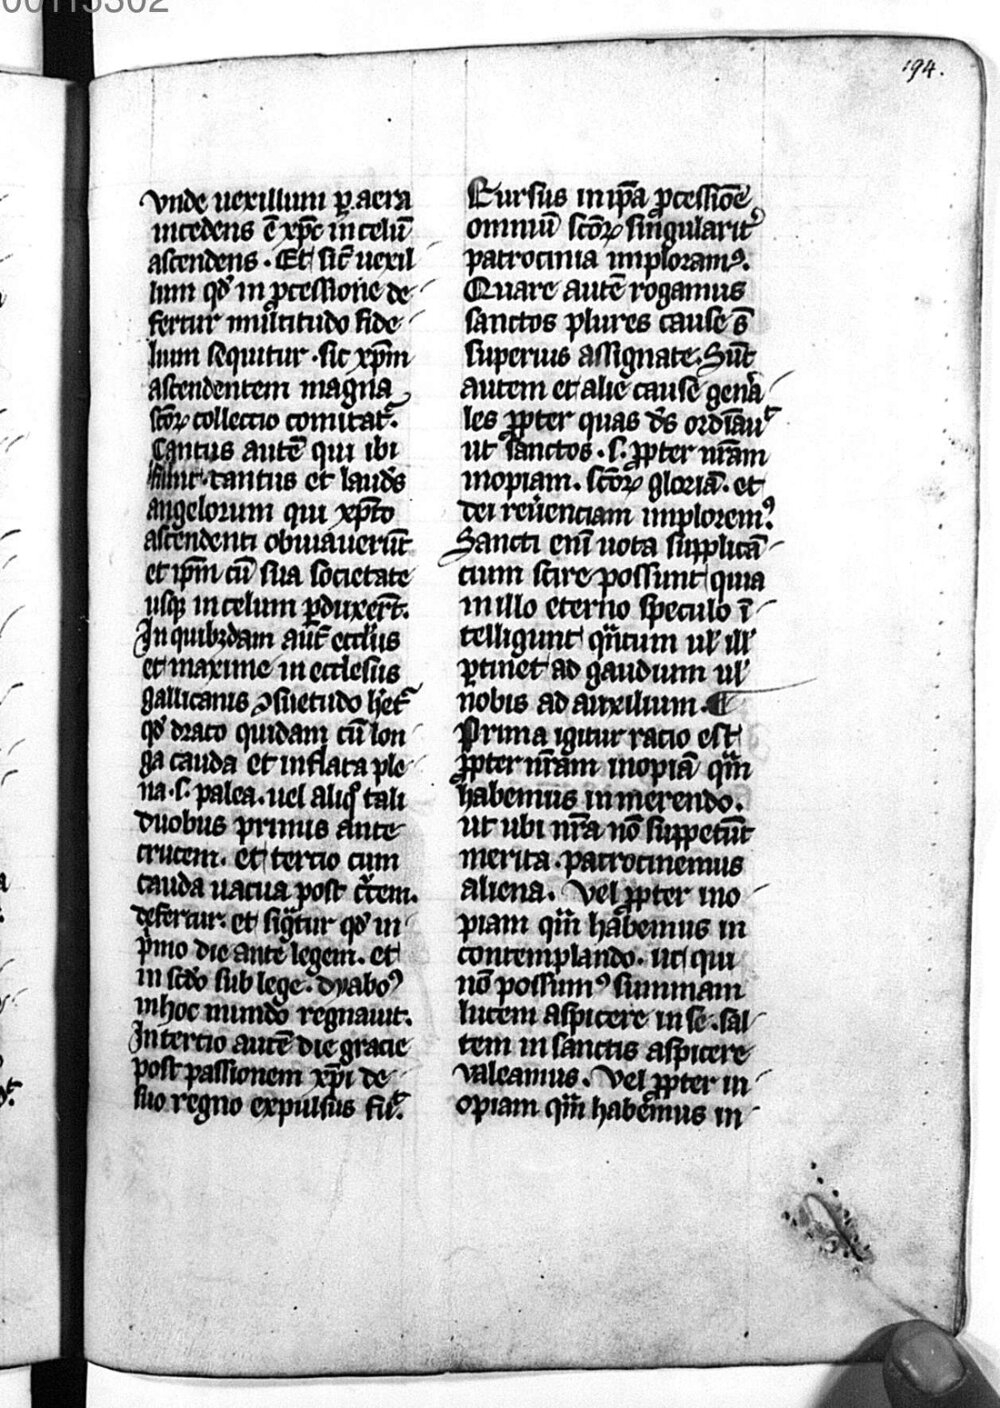 00113302
194.
vnde uexillum ꝑ aera
incedens ē xp̄c in celū
ascendens. Et sic̄ uexil
lum qd̛ in ꝓcessione de
fertur multitudo fide
lium sequitur. sic xp̄m
ascendentem magna
sc̄oꝝ collectio comitat̛.
Cantus autē qui ibi
cantus et laud̛s
angelorum qui xp̄to
ascendenti obuiauerūt
et ip̄m cū sua societate
usqꝫ in celum ꝑduxer̄t.
In quibꝫdam aut̄ eccl̄iis
et maxime in ecclesiis
gallicanis ꝯsuetudo h̄et̛
qd̛ draco quidam cū lon
ga cauda et inflata ple
na .s. palea. uel aliqͦ tali
duobus primis ante
crucem. et tercio cum
cauda uacua post cͬcem.
defertur. et sigͣtur qd̛ in
pͥmo die ante legem. et
in sc̄do sub lege. dyaboꝰ
in hoc mundo regnauit.
In tercio autē die gracie
post passionem xp̄i de
suo regno expulsus fuͥt.
Rursus in ip̄a ꝓcessiōe
omniū sc̄oꝝ singularit̛
patrocinia imploramꝰ.
Quare autē rogamus
sanctos plures cause s̄
superius assignate. Sūt
autem et alie cause gen̄a
les ꝓpter quas d̄s ordīauͥt
ut sanctos .s. ꝓpter nr̄am
inopiam. sc̄oꝝ gloriā. et
dei reưenciam imploremꝰ.
Sancti enī uota supplicā
cium scire possunt quia
in illo eterno speculo ī
telligunt qͣntum ul̛ ill̛
ꝑtinet ad gaudium ul̛
nobis ad auxilium. ¶
Prima igitur racio est
ꝓpter nr̄am inopiā qͣm
habemus in merendo.
ut ubi nr̄a nō suppetūt
merita. patrocinemus
aliena. Vel ꝓpter ino
piam qͣm habemus in
contemplando. ut qui
nō possumꝰ summam
lucem aspicere in se. sal
tem in sanctis aspicere
valeamus. Vel ꝓpter in
opiam qͣm habemus in